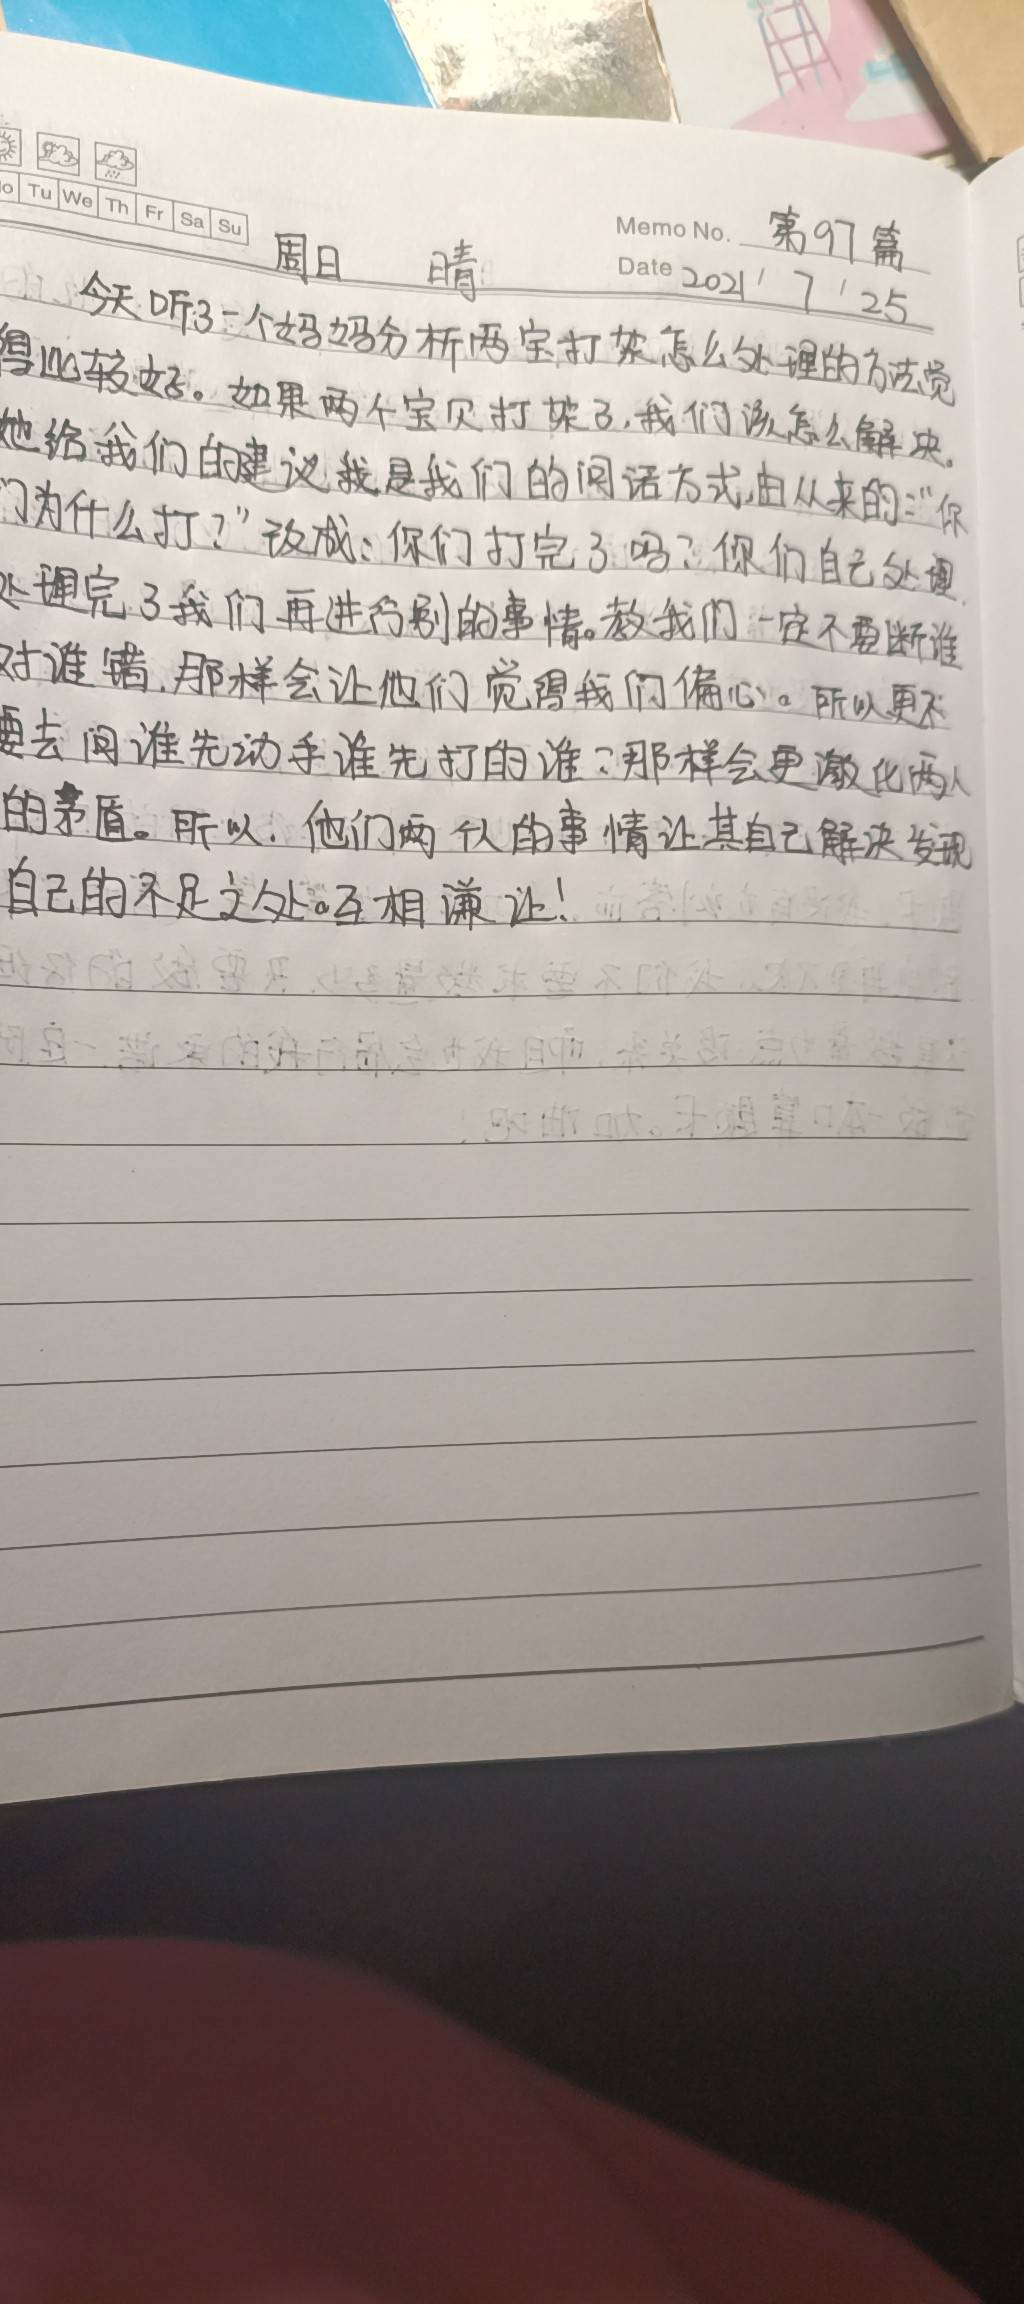 Tu We Th Fr Sa Su
Memo No. 第97篇
周日 晴
Date 2021 / 7 / 25
今天听了一个妈妈分析两宝打架怎么处理的方法觉
得比较好。如果两个宝贝打架了,我们该怎么解决.
她给我们的建议就是我们的问话方式,由从来的:"你
们为什么打?"改成:你们打完了吗?你们自己处理.
处理完了我们再进行别的事情。教我们一定不要断谁
对谁错,那样会让他们觉得我们偏心。所以更不
要去问谁先动手谁先打的谁?那样会更激化两人
的矛盾。所以.他们两个人的事情让其自己解决发现
自己的不足之处。互相谦让!